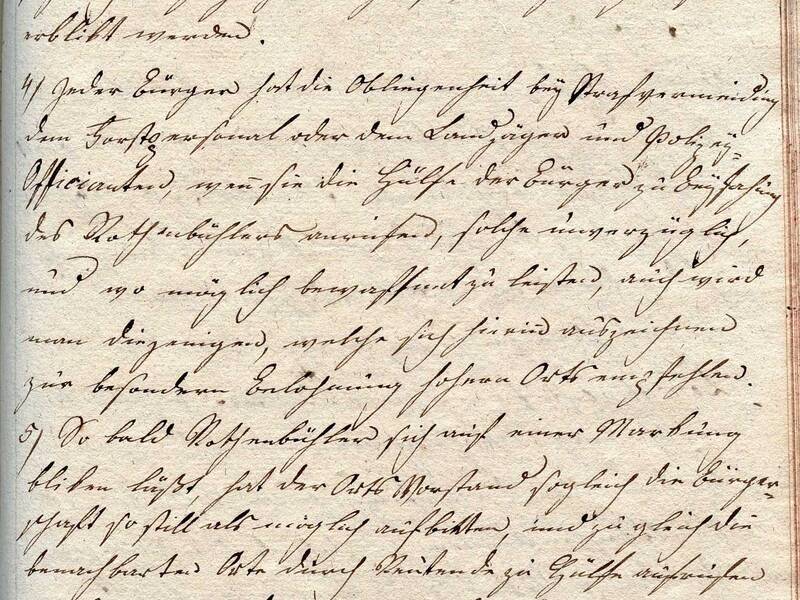 erblikt werden.
4) Jeder Bürger hat die Obliegenheit bey Strafvermeidung
dem Forstpersonal oder dem Landjäger und Polizey-
Officianten, wen̅ sie die Hülfe der Bürger zu Beyfahung
des Rothenbühlers anrufen, solche unverzüglich,
und wo möglich bewaffnet zu leisten, auch wird
man diejenigen, welche sich hierin̅ auszeichnen
zur besondern Belohnung hohern Orts empfehlen.
5) So bald Rothenbühler sich auf einer Markung
bliken läßt, hat der Orts Vorstand sogleich die Bürger-
schaft so still als möglich aufbitten, und zugleich die
benachbarten Orte durch Reutende zu Hülfe aufrufen